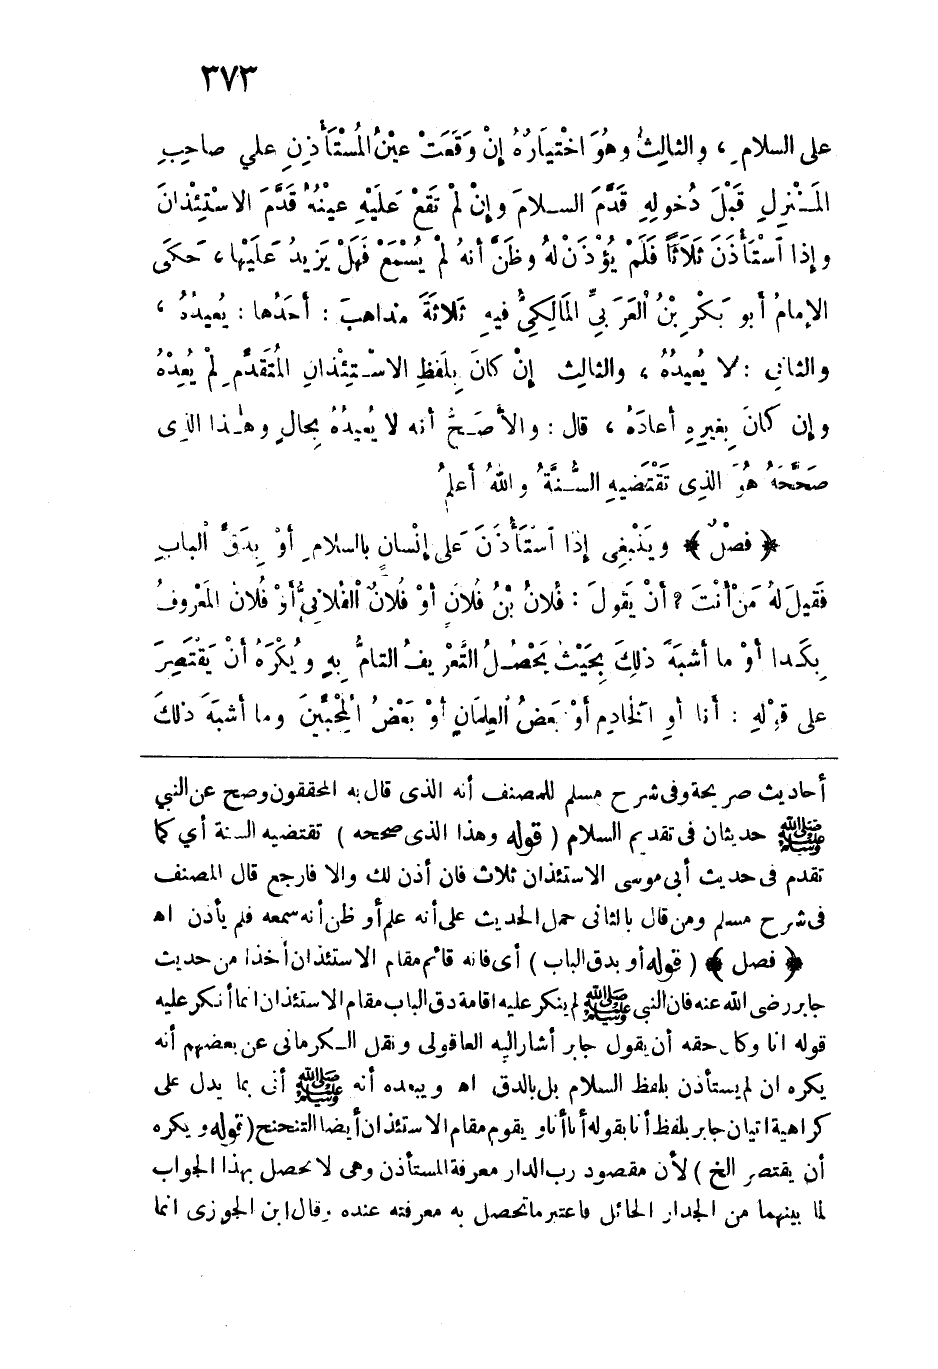 ٣٧٣
على السلام ، والثالثُ وهُوَ اخْتيَارُهُ إنْ وَقَعَتْ عيْنُ المُسْتَأذِنِ علي صاحِبِ
المَنْزِلِ قَبْلَ دُخولِهِ قَدَّمَ السلامَ وإنْ لمْ تقَعْ عَلَيْهِ عيْنُهُ قدَّمَ الاسْتِئْذانَ
وإذا اسْتَأْذَنَ ثَلَاثاً فَلَمْ يُؤْذَنْ لهُ وظَنَّ أنهُ لمْ يُسْمَعْ فَهَلْ يَزِيدُ عَلَيْها ، حَكَى
الإمامُ أبو بَكْرِ بْنُ العَرَبِيِّ المَالِكِيُّ فيهِ ثلاثَةَ مذاهبَ : أحَدُها : يُعِيدُهُ ،
والثاني : لا يُعيدُهُ ، والثالث إنْ كانَ بِلَفظِ الاسْتِئْذانِ المُتَقَدِّمِ لمْ يُعِدْهُ
وإن كانَ بِغيرِهِ أعادَهُ ، قال : والأصَحُّ أنه لا يُعيدُهُ بِحالٍ وهٰذا الذى
صَحَّحَهُ هُوَ الذِى تَقْتَضيهِ السُّنَّةُ واللهُ أعلمُ
﴿ فصْلٌ ﴾ ويَنْبغِى إذَا اسْتَأْذَنَ عَلَى إنْسانٍ بالسلامِ أوْ بِدَقِّ البابِ
فَقيلَ لهُ مَنْ أنْتَ ؟ أنْ يقولَ : فُلانُ بْنُ فُلانٍ أوْ فُلانٌ الفُلانِيُّ أوْ فُلان المَعْروفُ
بِكَذا أوْ ما أشبَهَ ذلِكَ بِحَيْثُ يَحْصُلُ التَّعْرِيفُ التامُّ بِهِ ويُكْرَهُ أنْ يَقْتَصِرَ
على قوْلهِ : أنا أوِ الخادِم أوْ بَعضُ الغِلمَانِ أوْ بَعْضُ المُحِبِّينَ وما أشبَهَ ذلكَ
أحاديث صريحة وفى شرح مسلم للمصنف أنه الذى قال به المحققون وصح عن النبي
ﷺ حديثان فى تقديم السلام ( قوله وهذا الذى صححه ) تقتضيه السنة أي كما
تقدم فى حديث أبى موسى الاستئذان ثلاث فان أذن لك والا فارجع قال المصنف
فى شرح مسلم ومن قال بالثانى حمل الحديث على أنه علم أو ظن أنه سمعه فلم يأذن اه
﴿ فصل ﴾ ( قوله أو بدق الباب ) أى فانه قائم مقام الاستئذان أخذا من حديث
جابر رضى الله عنه فان النبى ﷺ لم ينكر عليه اقامة دق الباب مقام الاستئذان انما أنكر عليه
قوله انا وكان حقه أن يقول جابر أشار اليه العاقولى ونقل الكرمانى عن بعضهم أنه
يكره ان لم يستأذن بلفظ السلام بل بالدق اه ويبعده أنه ﷺ أتى بما يدل على
كراهية اتيان جابر بلفظ أنا بقوله أنا أنا ويقوم مقام الاستئذان أيضا التنحنح ( قوله ويكره
أن يقتصر الخ ) لأن مقصود رب الدار معرفة المستأذن وهى لا تحصل بهذا الجواب
لما بينهما من الجدار الحائل فاعتبر ما تحصل به معرفته عنده وقال ابن الجوزى انما